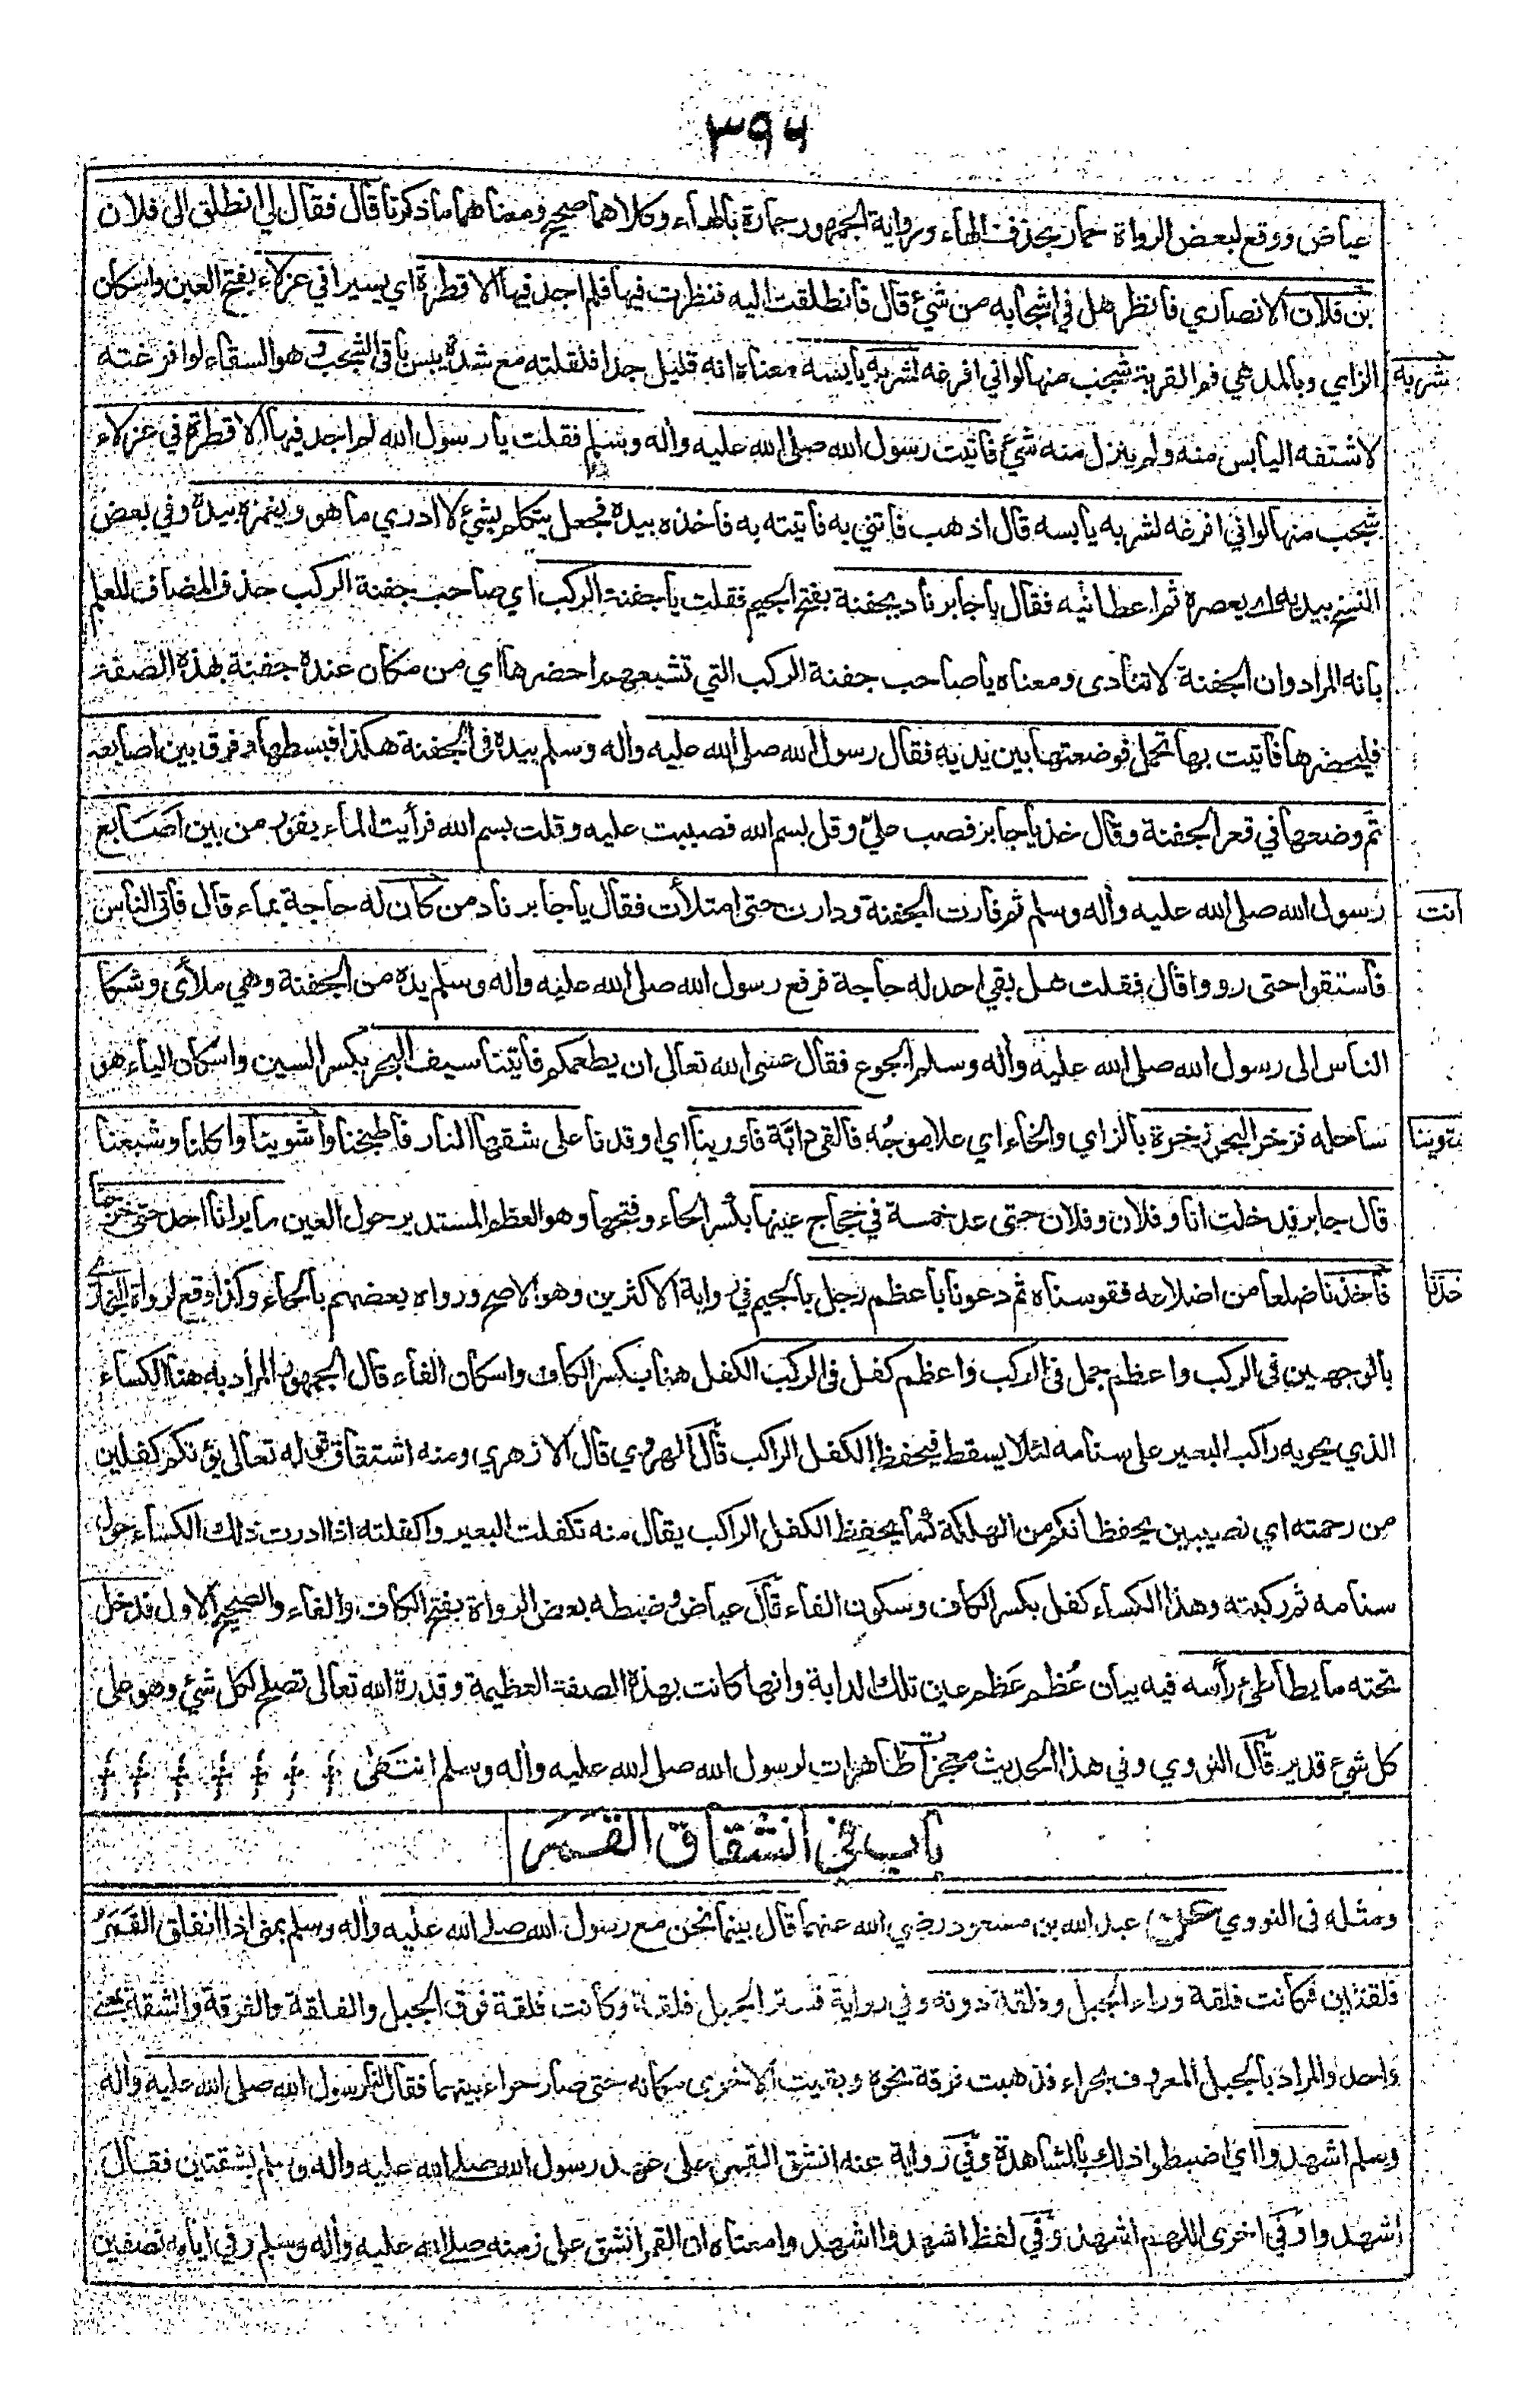 ٣٩٦
عياض ووقع لبعض الرواة حمار بحذف الهاء ورواية الجمهور حمارة بالهاء وكلاهما صحيح ومعناهما ما ذكرنا قال فقال لي انطلق الى فلان
بن فلان الانصاري فانظر هل في اشجابه من شيء قال فانطلقت اليه فنظرت فيها فلم اجد فيها الا قطرة اي يسيرا في عزلاء بفتح العين واسكان
شربه
الزاي وبالمد هي فم القربة شجب منها لو اني افرغه لشربه يابسه معناه انه قليل جدا فلقلته مع شدة يبس باقي الشجب وهو السقاء لو افرغته
لاشتفه اليابس منه ولم ينزل منه شيء فاتيت رسول الله صلى الله عليه واله وسلم فقلت يا رسول الله لم اجد فيها الا قطرة في عزلاء
شجب منها لو اني افرغه لشربه يابسه قال اذهب فاتني به فاتيته به فاخذه بيده فجعل يتكلم بشيء لا ادري ما هو ويغمزه بيده وفي بعض
النسخ بيديه اي يعصره ثم اعطانيه فقال يا جابر ناد بجفنة بفتح الجيم فقلت يا جفنة الركب اي صاحب جفنة الركب حذف المضاف للعلم
بانه المراد وان الجفنة لا تنادى ومعناه يا صاحب جفنة الركب التي تشبعهم احضرها اي من مكان عنده جفنة بهذه الصفة
فليحضرها فاتيت بها تحمل فوضعتها بين يديه فقال رسول الله صلى الله عليه واله وسلم بيده في الجفنة هكذا فبسطها وفرق بين اصابعه
ثم وضعها في قعر الجفنة وقال خذ يا جابر فصب عليّ وقل بسم الله فصببت عليه وقلت بسم الله فرأيت الماء يفور من بين اصابع
انت
رسول الله صلى الله عليه واله وسلم ثم فارت الجفنة ودارت حتى امتلأت فقال يا جابر ناد من كان له حاجة بماء قال فاتى الناس
فاستقوا حتى رووا قال فقلت هل بقي احد له حاجة فرفع رسول الله صلى الله عليه واله وسلم يده من الجفنة وهي ملأى وشكا
الناس الى رسول الله صلى الله عليه واله وسلم الجوع فقال عسى الله تعالى ان يطعمكم فاتينا سيف البحر بكسر السين واسكان الياء هو
ساحله فزخر البحر زخرة بالزاي والخاء اي علا موجه فالقى دابّة فاورينا اي اوقدنا على شقها النار فاطبخنا واشوينا واكلنا وشبعنا
قال جابر فدخلت انا وفلان وفلان حتى عد خمسة في حجاج عينها بكسر الحاء وفتحها وهو العظم المستدير حول العين ما يرانا احد حتى خرجنا
فاخذنا ضلعا من اضلاعه فقوسناه ثم دعونا باعظم رجل بالجيم في رواية الاكثرين وهو الاصح ورواه بعضهم بالحاء وكذا وقع لرواة البخاري
بالوجهين في الركب واعظم جمل في الركب واعظم كفل في الركب الكفل هنا بكسر الكاف واسكان الفاء قال الجمهور المراد به هنا الكساء
الذي يحويه راكب البعير على سنامه لئلا يسقط فيحفظ الكفل الراكب قال الهروي قال الازهري ومنه اشتقاق قوله تعالى يؤتكم كفلين
من رحمته اي نصيبين يحفظانكم من الهلكة كما يحفظ الكفل الراكب يقال منه تكفلت البعير واكفلته اذا ادرت ذلك الكساء حول
سنامه ثم ركبته وهذا الكساء كفل بكسر الكاف وسكون الفاء قال عياض وضبطه بعض الرواة بفتح الكاف والفاء والصحيح الاول فدخل
تحته ما يطأطئ رأسه فيه بيان عُظم عَظم عين تلك الدابة وانها كانت بهذه الصفة العظيمة وقدرة الله تعالى تصلح لكل شيء وهو على
كل شيء قدير قال النووي وفي هذا الحديث معجزات ظاهرات لرسول الله صلى الله عليه واله وسلم انتهى
باب في انشقاق القمر
ومثله في النووي عن عبد الله بن مسعود رضي الله عنهما قال بينما نحن مع رسول الله صلى الله عليه واله وسلم بمنى اذا انفلق القمر
فلقتين فكانت فلقة وراء الجبل وفلقة دونه وفي رواية فستر الجبل فلقة وكانت فلقة فوق الجبل والفلقة والفرقة والشقة بمعنى
واحد والمراد بالجبل المعروف بحراء فذهبت فرقة نحوه وبقيت الاخرى مكانه حتى صار حراء بينهما فقال لنا رسول الله صلى الله عليه واله
وسلم اشهدوا اي اضبطوا ذلك بالشاهدة وفي رواية عنه انشق القمر على عهد رسول الله صلى الله عليه واله وسلم بشقتين فقال
اشهدوا وفي اخرى اللهم اشهد وفي لفظ اشهدوا اشهدوا معناه ان القمر انشق على زمنه صلى الله عليه واله وسلم وفي ايامه نصفين